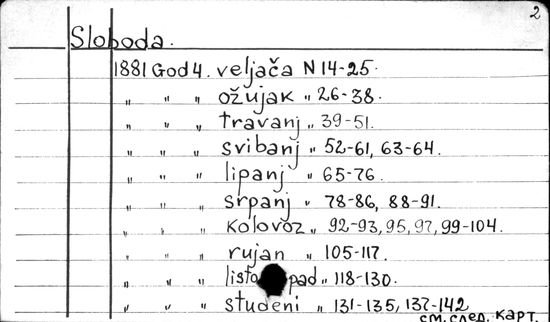 2
Sloboda.
1881 God 4. veljača N 14-25.
" " " ožujak " 26-38.
" " " travanj " 39-51.
" " " svibanj " 52-61, 63-64.
" " " lipanj " 65-76.
" " " srpanj " 78-86, 88-91.
" " " kolovoz " 92-93, 95, 97, 99-104.
" " " rujan " 105-117.
" " " listo pad " 118-130.
" " " studeni " 131-135, 137-142
см. след. карт.